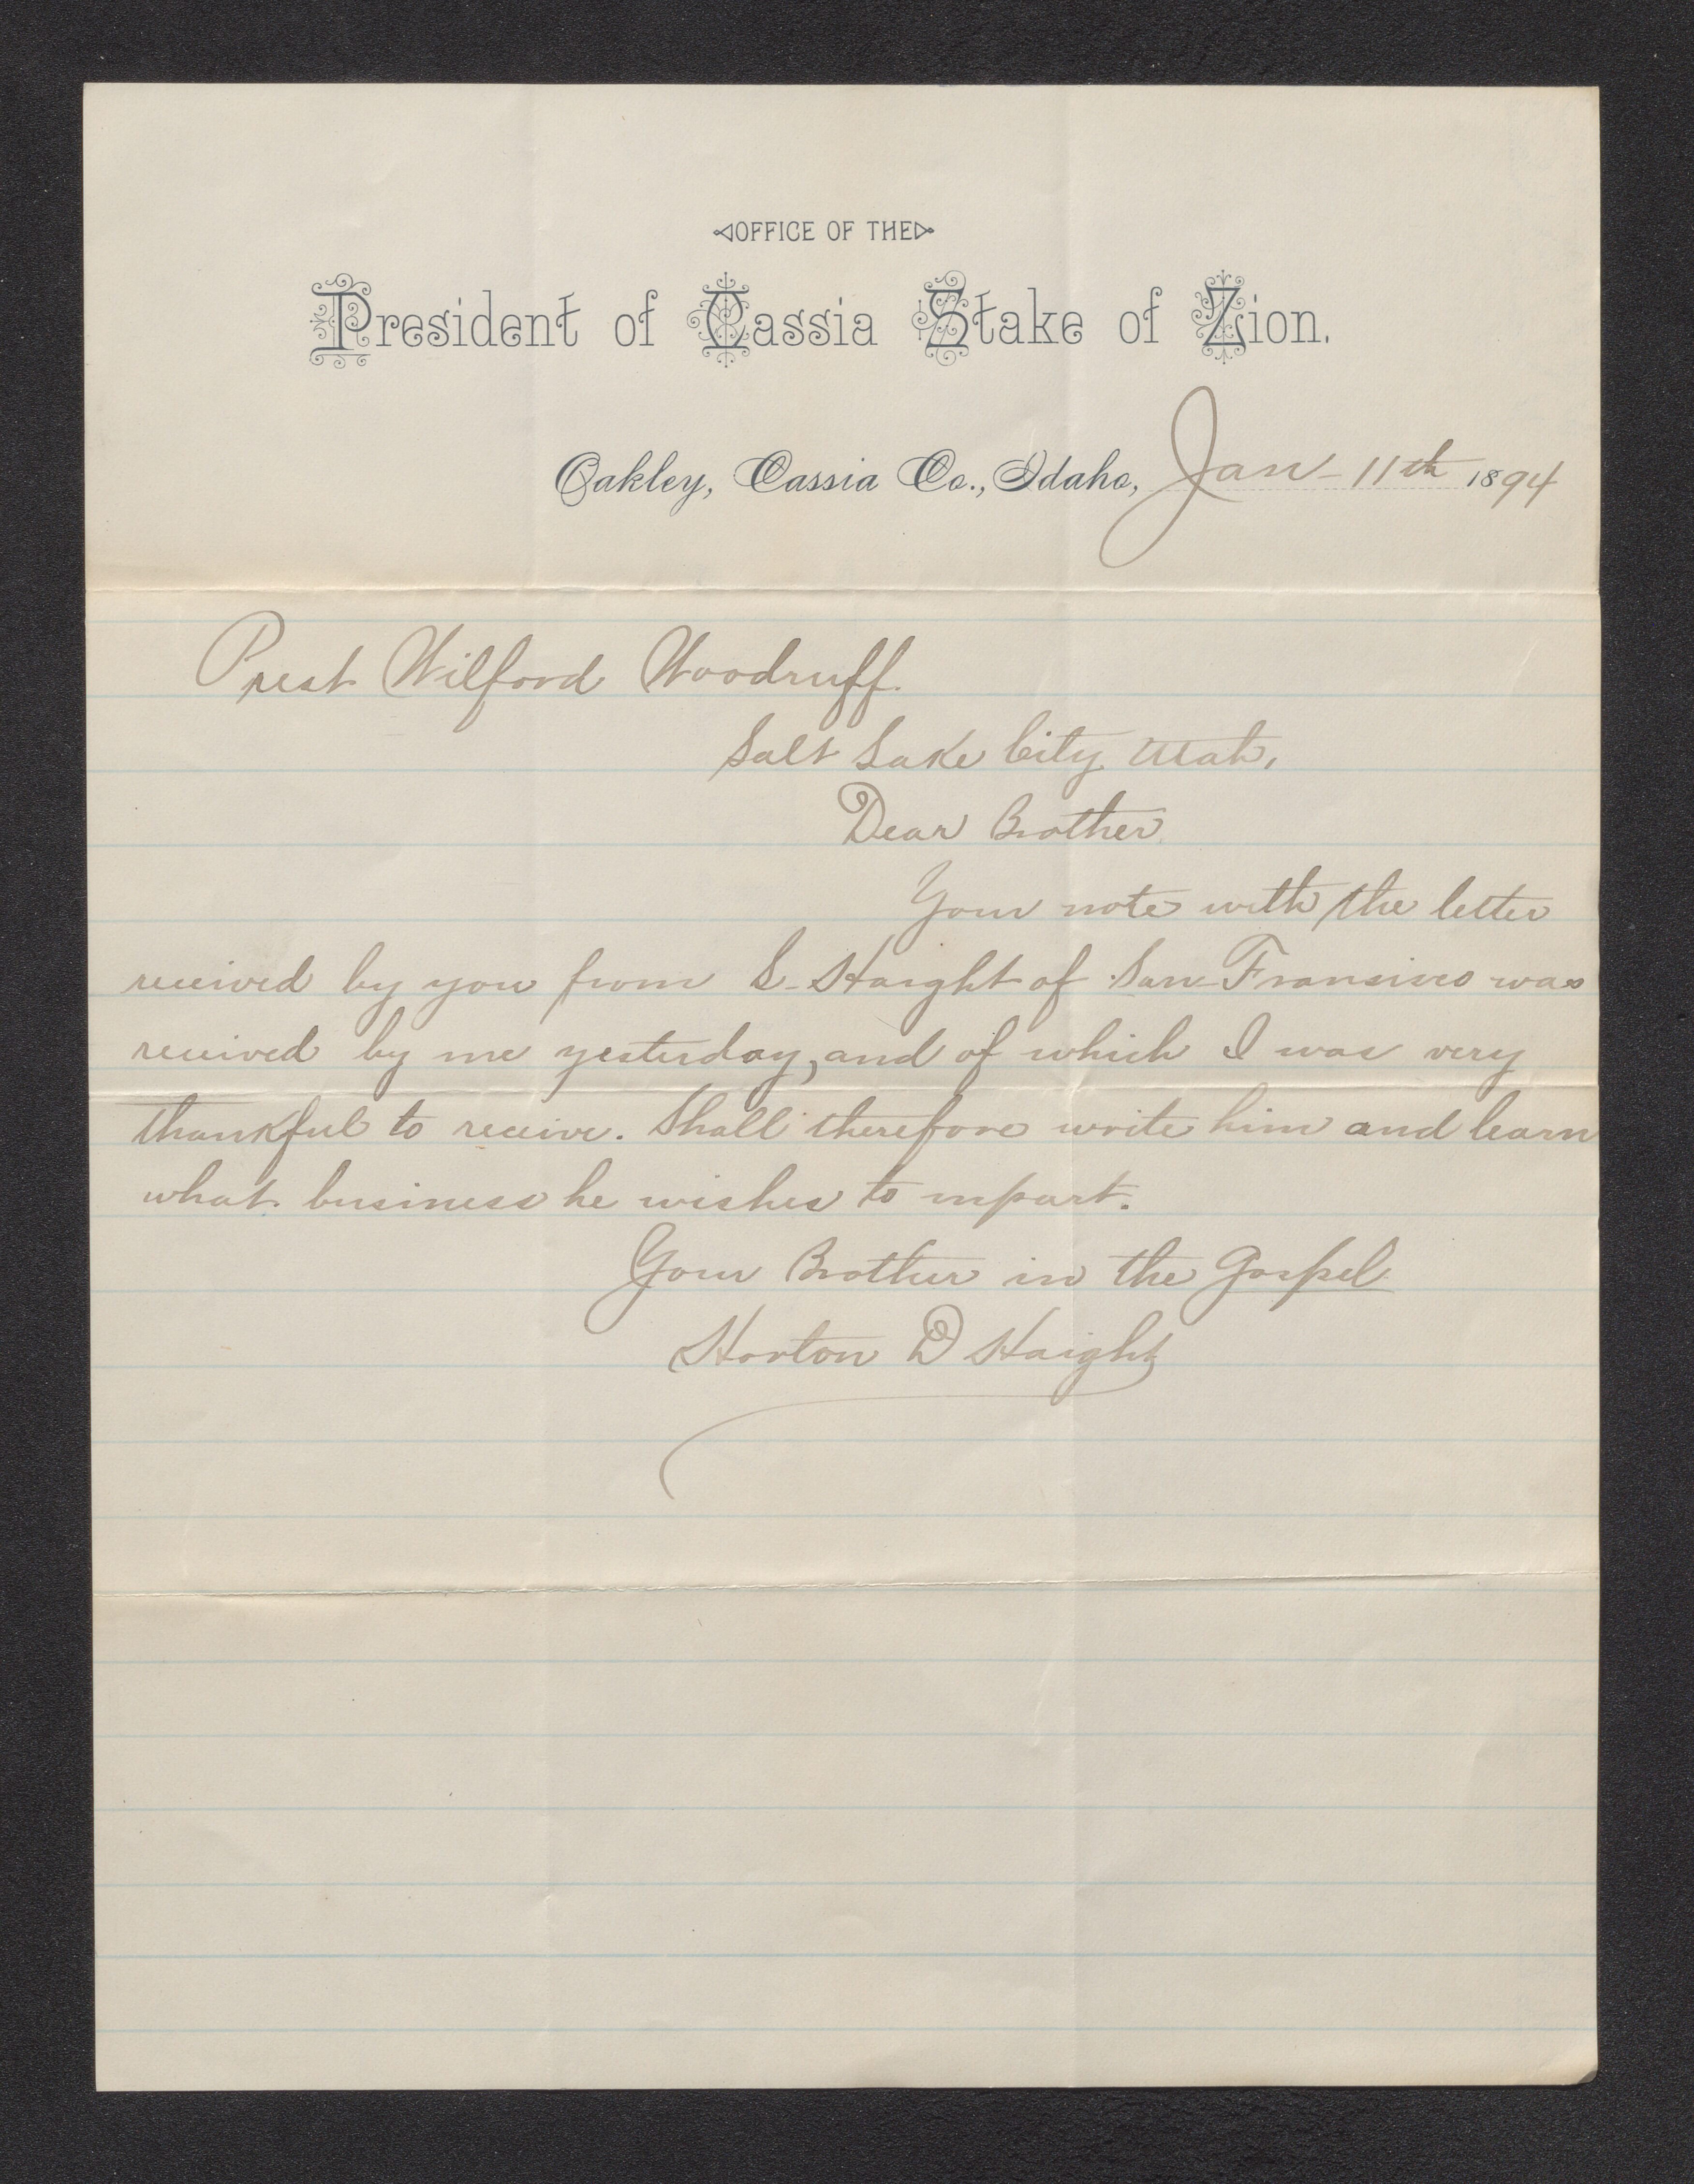 OFFICE OF THE
President of Cassia Stake of Zion.
Oakley, Cassia Co., Idaho, Jan 11th 1894
Prest Wilford Woodruff.
Salt Lake City Utah,
Dear Brother
Your note with the letter
received by you from S. Haight of San Fransisco was
received by me yesterday, and of which I was very
thankful to receive. Shall therefore write him and learn
what business he wishes to impart.
Your Brother in the Gospel
Horton D Haight